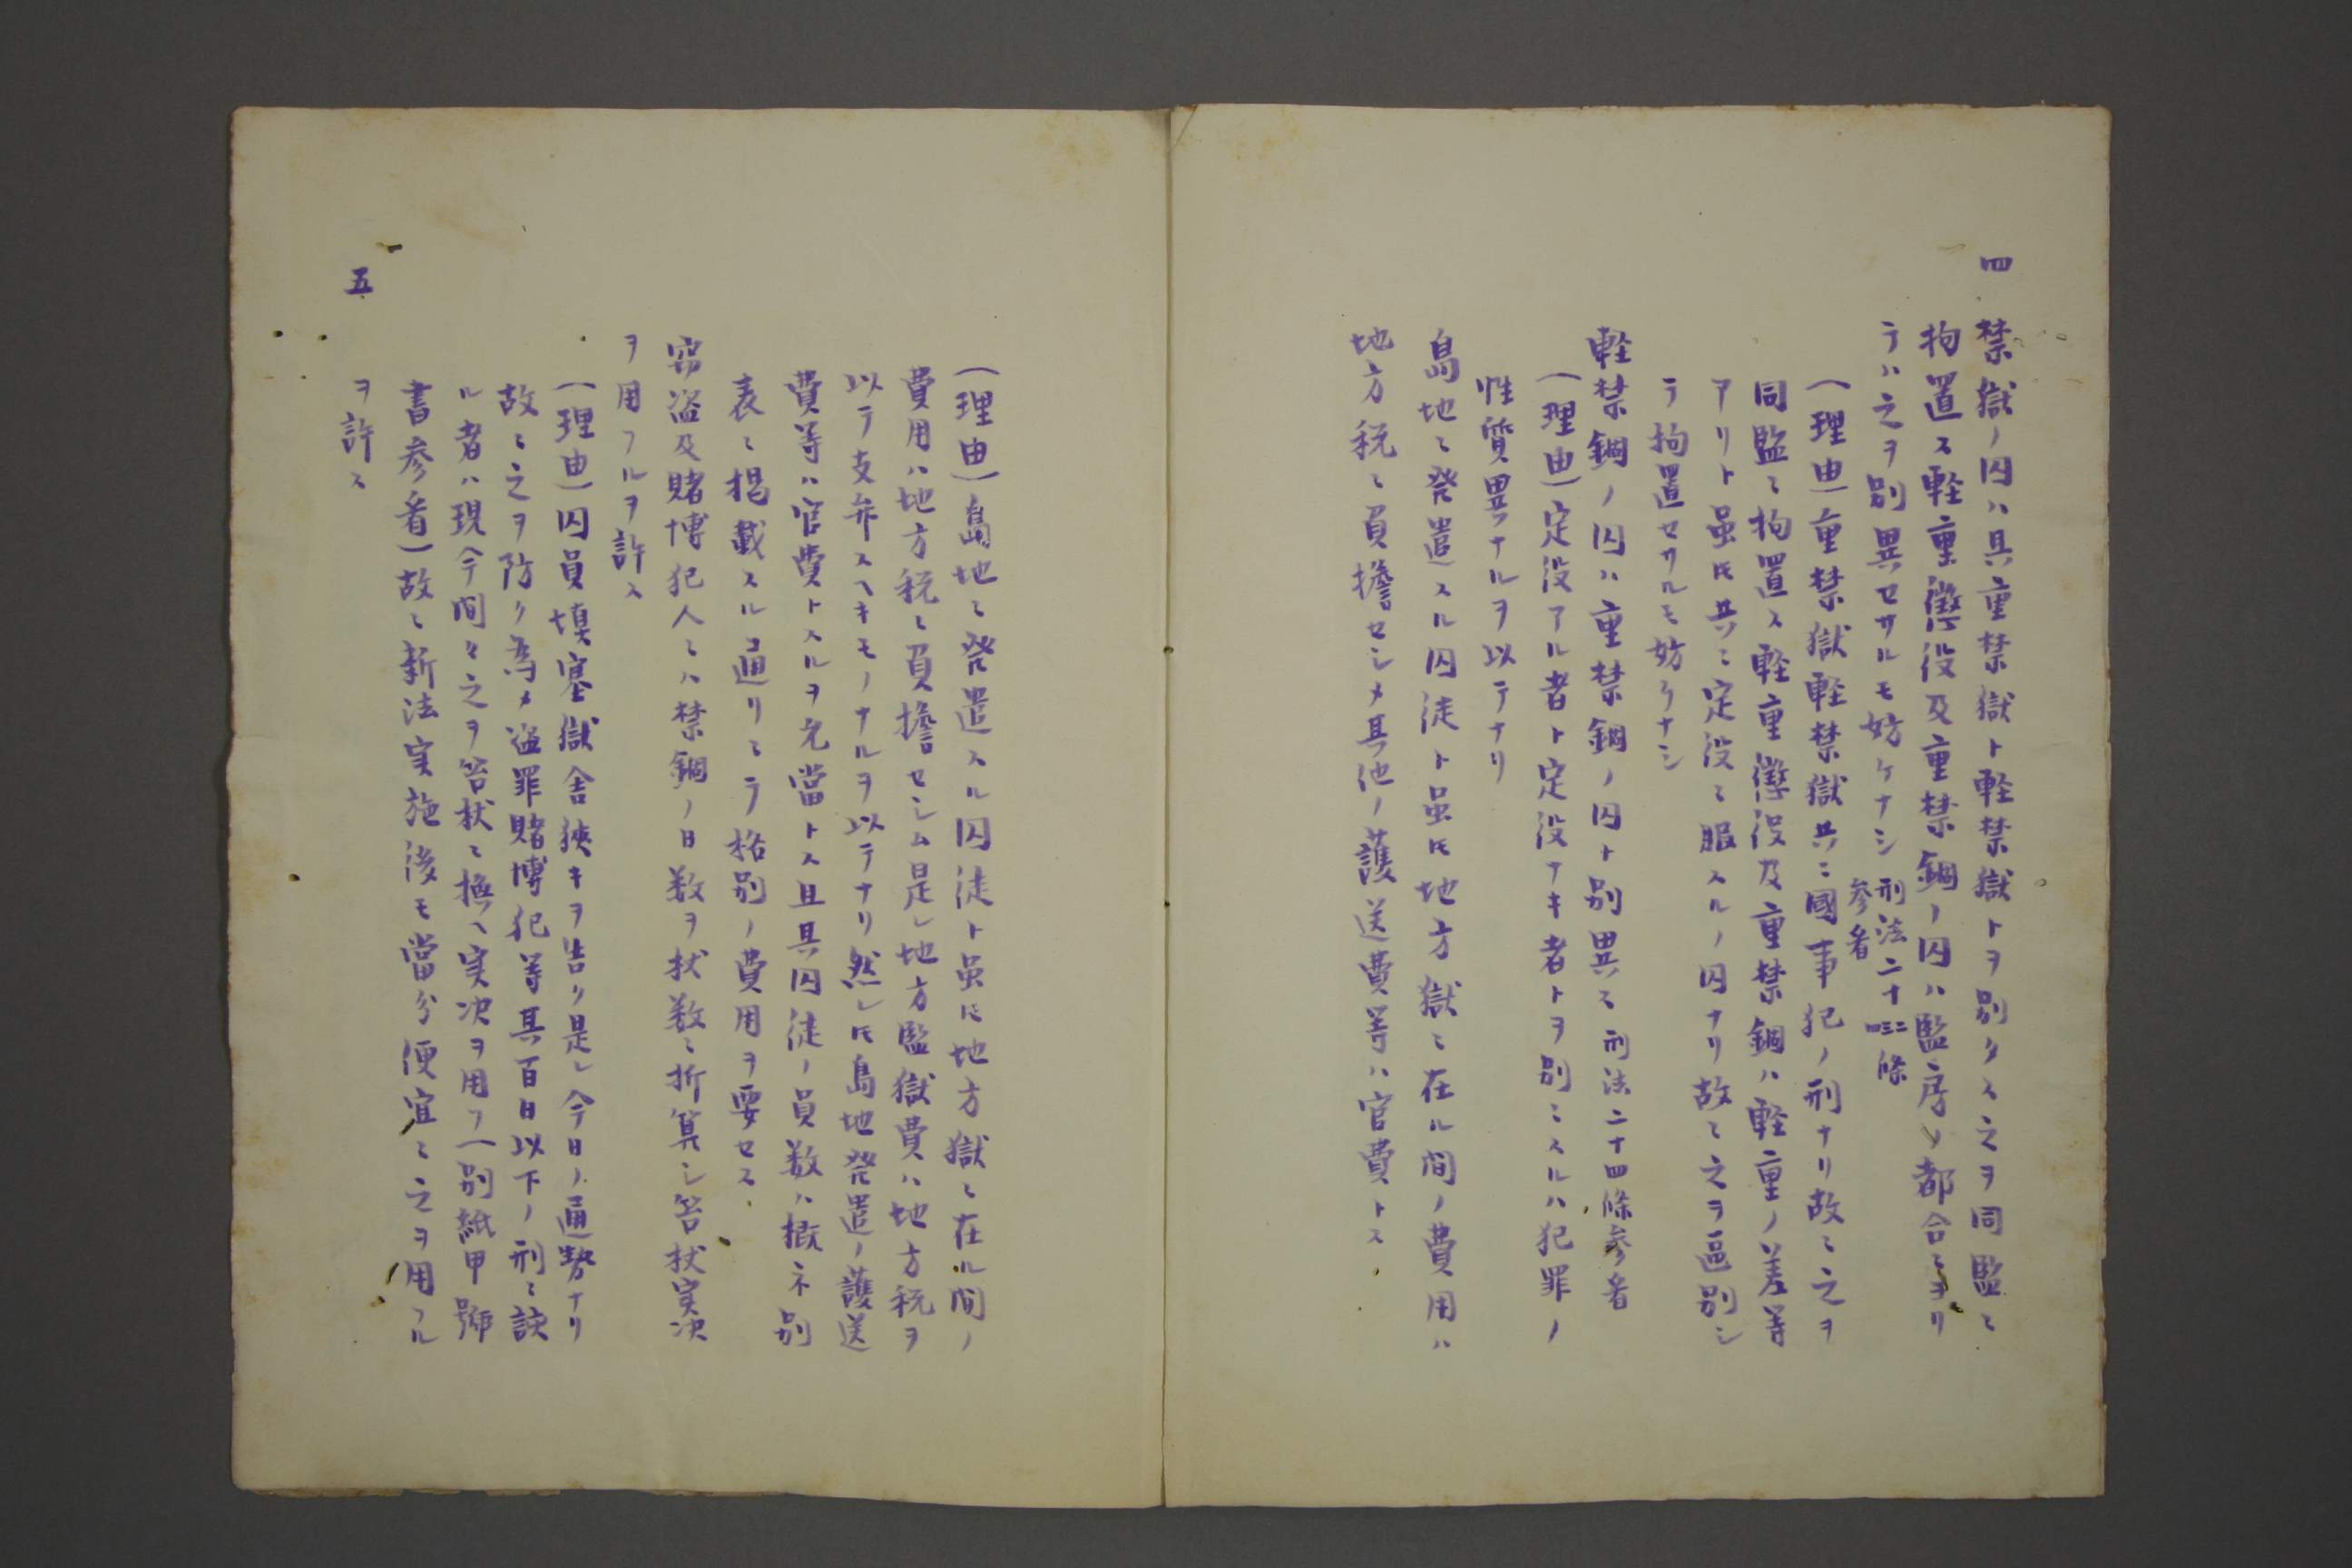 四
禁獄ノ囚ハ其重禁獄ト軽禁獄トヲ別タス之ヲ同監ニ
拘置ス軽重懲役及重禁錮ノ囚ハ監房ノ都合ニヨリ
テハ之ヲ別異セサルモ妨ケナシ 刑法二十二三四條参看
(理由)重禁獄軽禁獄共ニ國事犯ノ刑ナリ故ニ之ヲ
同監ニ拘置ス軽重懲役及重禁錮ハ軽重ノ差等
アリト虽𪜈共ニ定役ニ服スルノ囚ナリ故ニ之ヲ區別シ
テ拘置セサルモ妨ケナシ
軽禁錮ノ囚ハ重禁錮ノ囚ト別異ス 刑法二十四條参看
(理由)定役アル者ト定役ナキ者トヲ別ニスルハ犯罪ノ
性質異ナルヲ以テナリ
島地ニ発遣スル囚徒ト虽𪜈地方獄ニ在ル間ノ費用ハ
地方税ニ負擔セシメ其他ノ護送費等ハ官費トス
(理由)島地ニ発遣スル囚徒ト虽𪜈地方獄ニ在ル間ノ
費用ハ地方税ニ負擔セシム是レ地方監獄費ハ地方税ヲ
以テ支弁スヘキモノナルヲ以テナリ然レ𪜈島地発遣ノ護送
費等ハ官費トスルヲ允當トス且其囚徒ノ員数ハ概ネ別
表ニ掲載スル通リニテ格別ノ費用ヲ要セス
窃盗及賭博犯人ニハ禁錮ノ日数ヲ杖数ニ折算シ笞杖実决
ヲ用フルヲ許ス
(理由)囚員填塞獄舎狹キヲ告ク是レ今日ノ通勢ナリ
故ニ之ヲ防ク為メ盗罪賭博犯等其百日以下ノ刑ニ該
ル者ハ現今間々之ヲ笞杖ニ換ヘ実决ヲ用フ(別紙甲號
書参看)故ニ新法実施後モ當分便宜ニ之ヲ用フル
ヲ許ス
五